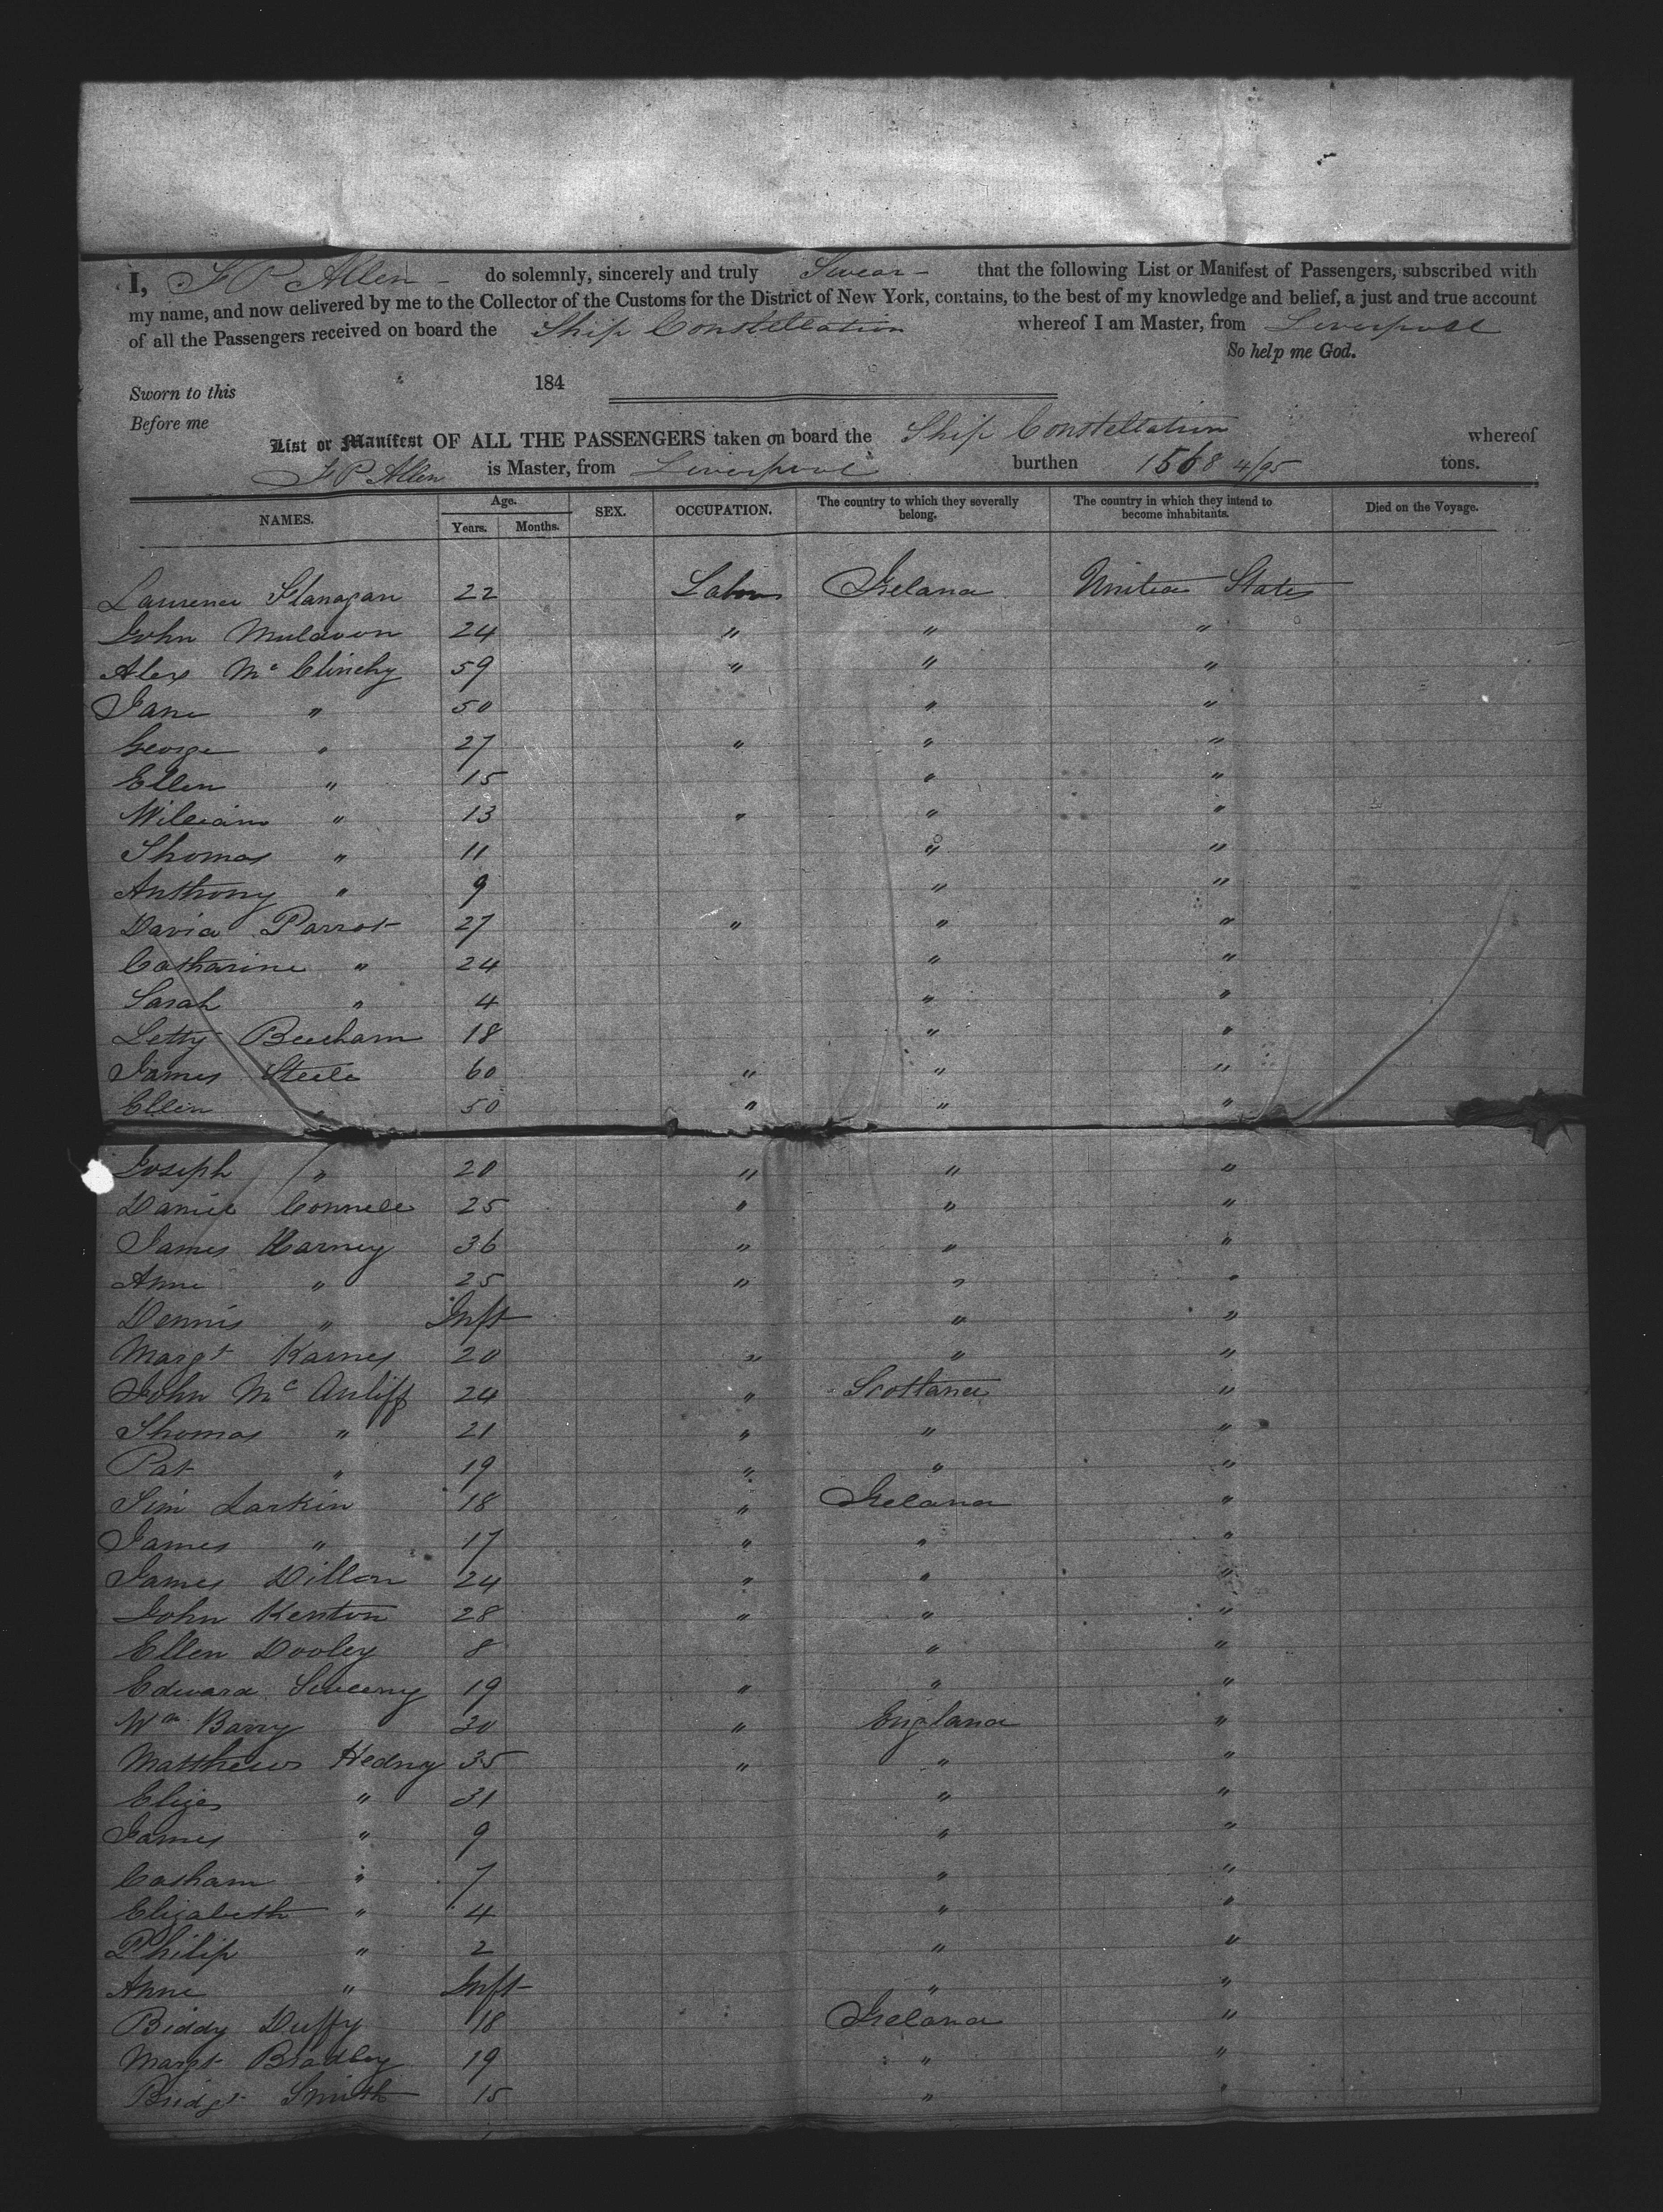 I, F P Allen do solemnly, sincerely and truly Swear that the following List or Manifest of Passengers, subscribed with
my name, and now delivered by me to the Collector of the Customs for the District of New York, contains, to the best of my knowledge and belief, a just and true account
of all the Passengers received on board the Ship Constellation whereof I am Master, from Liverpool
So help me God.
Sworn to this 184
Before me
List or Manifest OF ALL THE PASSENGERS taken on board the Ship Constellation whereof
F P Allen is Master, from Liverpool burthen 1568 4/95 tons.
NAMES. Age. Years. Months. SEX. OCCUPATION. The country to which they severally belong. The country in which they intend to become inhabitants. Died on the Voyage.
Laurence Flanagan 22 Labor Ireland United States
John Muldoon 24 " " "
Alex Mc Clinchy 59 " " "
Jane " 50 " "
George " 27 " " "
Ellen " 15 " "
William " 13 " " "
Thomas " 11 " "
Anthony " 9 " "
David Parrot 27 " " "
Catharine " 24 " "
Sarah " 4 " "
Letty Beecham 18 " "
James Steele 60 " " "
Ellen 50 " " "
Joseph " 20 " " "
Daniel Connell 25 " " "
James Karney 36 " " "
Anne " 25 " " "
Dennis " Inft " "
Margt Karnes 20 " " "
John Mc Auliff 24 " Scotland "
Thomas " 21 " " "
Pat " 19 " " "
Tim Larkin 18 " Ireland "
James " 17 " " "
James Dillon 24 " " "
John Kenton 28 " " "
Ellen Dooley 8 " "
Edward Sweeny 19 " " "
Wm Barry 30 " England "
Matthew Hedny 35 " " "
Eliza " 31 " "
James " 9 " "
" 7 " "
Elizabeth " 4 " "
Philip " 2 " "
Anne " Inft " "
Biddy Duffy 18 Ireland "
Margt Bradley 19 " "
Bridgt Smith 15 " "